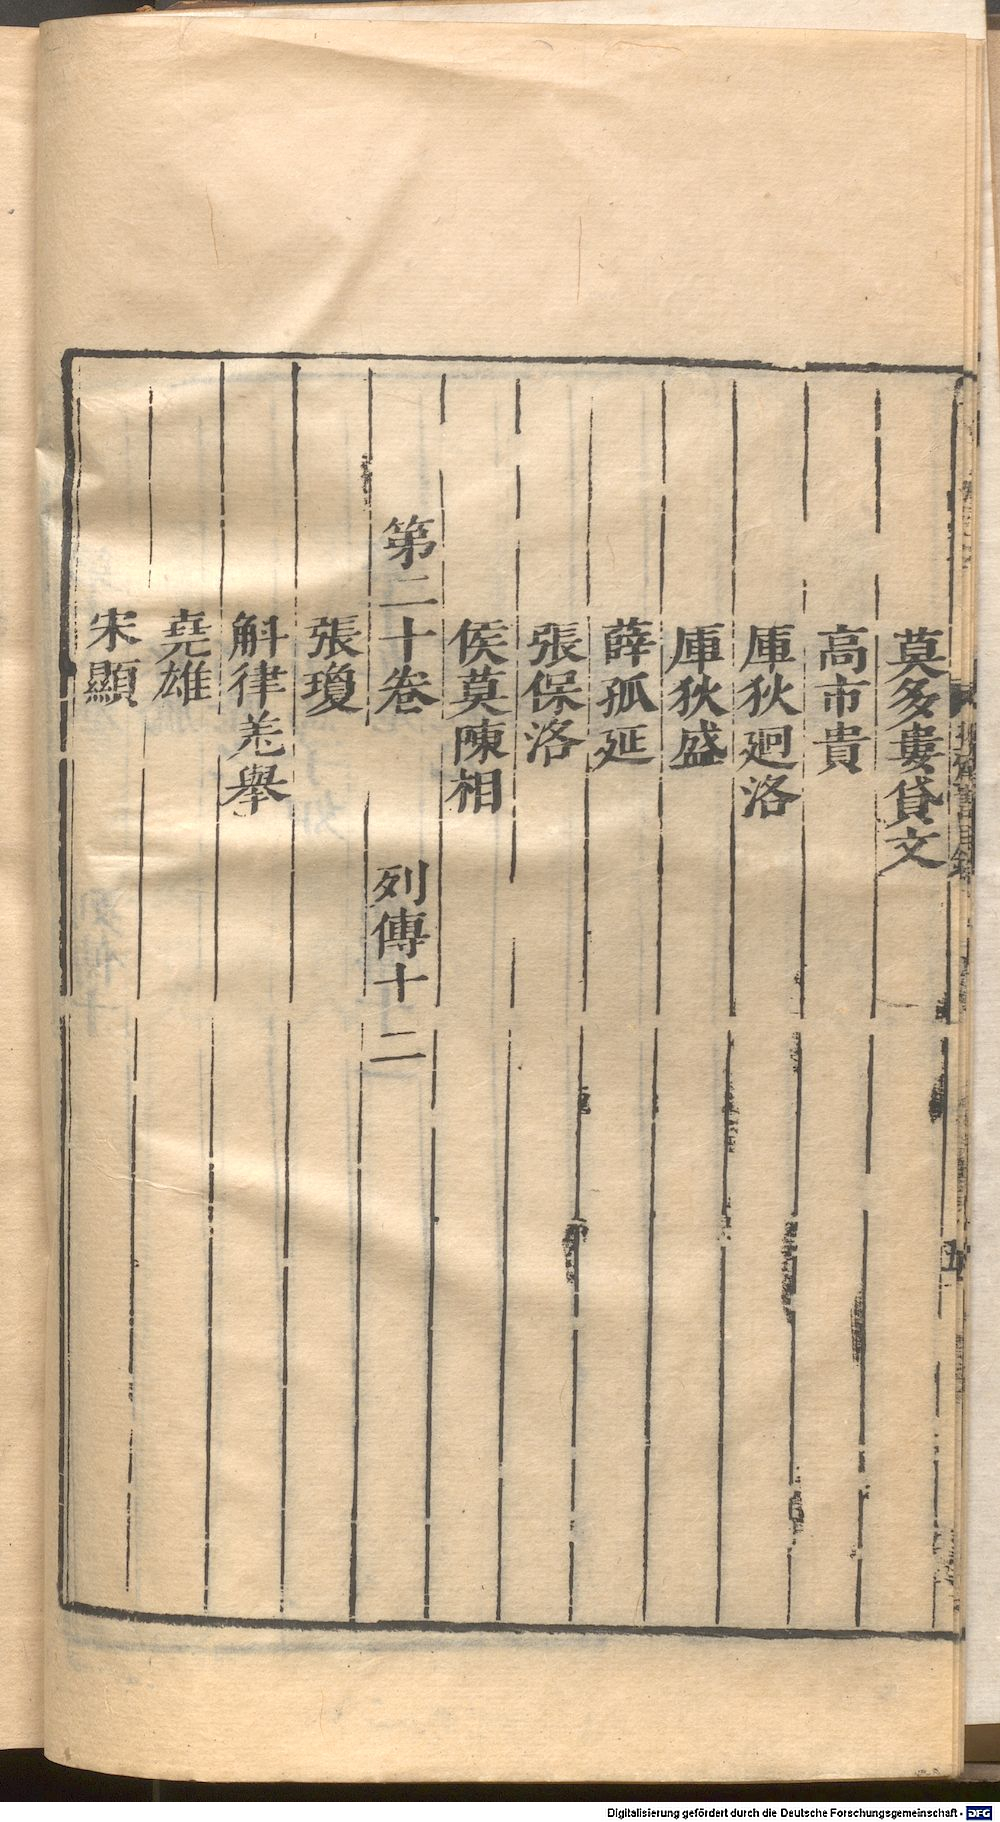 莫多婁貸文
高市貴
厙狄廻洛
厙狄盛
薛孤延
張保洛
侯莫陳相
第二十卷 列傳十二
張瓊
斛律羌舉
堯雄
宋顯
Digitalisierung gefördert durch die Deutsche Forschungsgemeinschaft - DFG